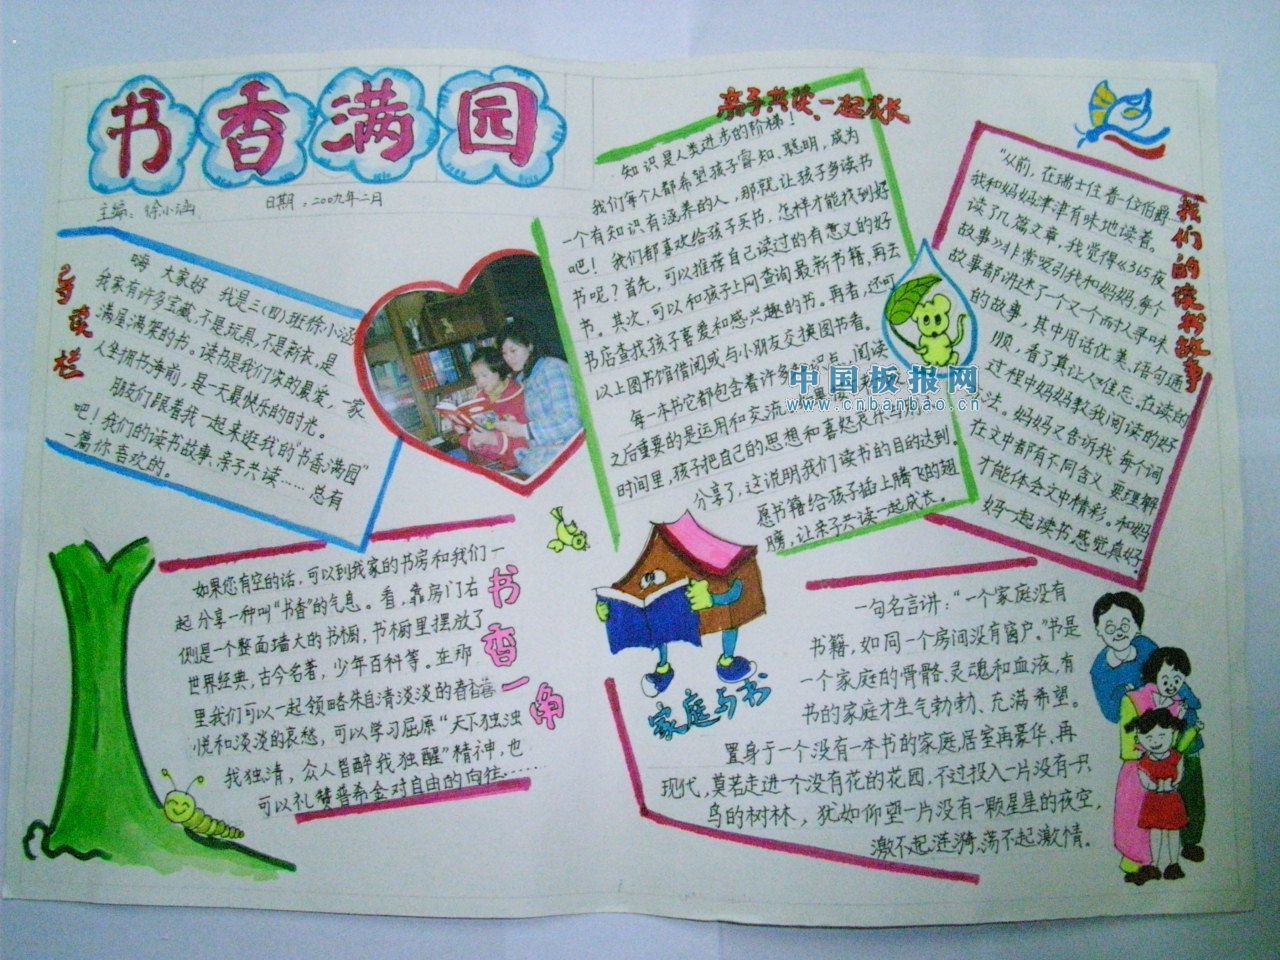 书香满园
主编：徐小涵
日期：二〇〇九年二月
导读栏
嗨 大家好 我是三(四)班徐小涵
我家有许多宝藏，不是玩具，不是新衣，是
满屋满架的书。读书是我们家的最爱，一家
人坐拥书海前，是一天最快乐的时光。
朋友们跟着我一起来逛我的“书香满园”
吧！我们的读书故事、亲子共读……总有
一篇你喜欢的。
亲子共读、一起成长
知识是人类进步的阶梯！
我们每个人都希望孩子睿知、聪明，成为
一个有知识有涵养的人，那就让孩子多读书
吧！我们都喜欢给孩子买书，怎样才能找到好
书呢？首先，可以推荐自己读过的有意义的好
书。其次，可以和孩子上网查询最新书籍，再去
书店查找孩子喜爱和感兴趣的书。再者，还可
以上图书馆借阅或与小朋友交换图书看。
每一本书它都包含着许多知识点，阅读
之后重要的是运用和交流
时间里，孩子把自己的思想和喜怒
分享了，这说明我们读书的目的达到。
愿书籍给孩子插上腾飞的翅
膀，让亲子共读一起成长。
我们的读书故事
“从前，在瑞士住着一位伯爵……”
我和妈妈津津有味地读着。
读了几篇文章，我觉得《365夜
故事》非常吸引我和妈妈，每个
故事都讲述了一个又一个耐人寻味
的故事，其中用话优美、语句通
顺，看了真让人难忘，在读的
过程中妈妈教我阅读的好
办法。妈妈又告诉我，每个词
在文中都有不同含义，要理解
才能体会文中精彩。和妈
妈一起读书，感觉真好
中国板报网
www.cnbanbao.cn
书香一角
如果您有空的话，可以到我家的书房和我们一
起分享一种叫“书香”的气息。看，靠房门右
侧是一个整面墙大的书橱，书橱里摆放了
世界经典，古今名著，少年百科等。在那
里我们可以一起领略朱自清淡淡的喜
悦和淡淡的哀愁，可以学习屈原“天下独浊
我独清，众人皆醉我独醒”精神，也
可以礼赞普希金对自由的向往……
家庭与书
一句名言讲：“一个家庭没有
书籍，如同一个房间没有窗户。”书是
一个家庭的骨骼、灵魂和血液，有
书的家庭才生气勃勃、充满希望。
置身于一个没有一本书的家庭，居室再豪华、再
现代，莫若走进一个没有花的花园，不过投入一片没有一只
鸟的树林，犹如仰望一片没有一颗星星的夜空，
激不起涟漪，荡不起激情。